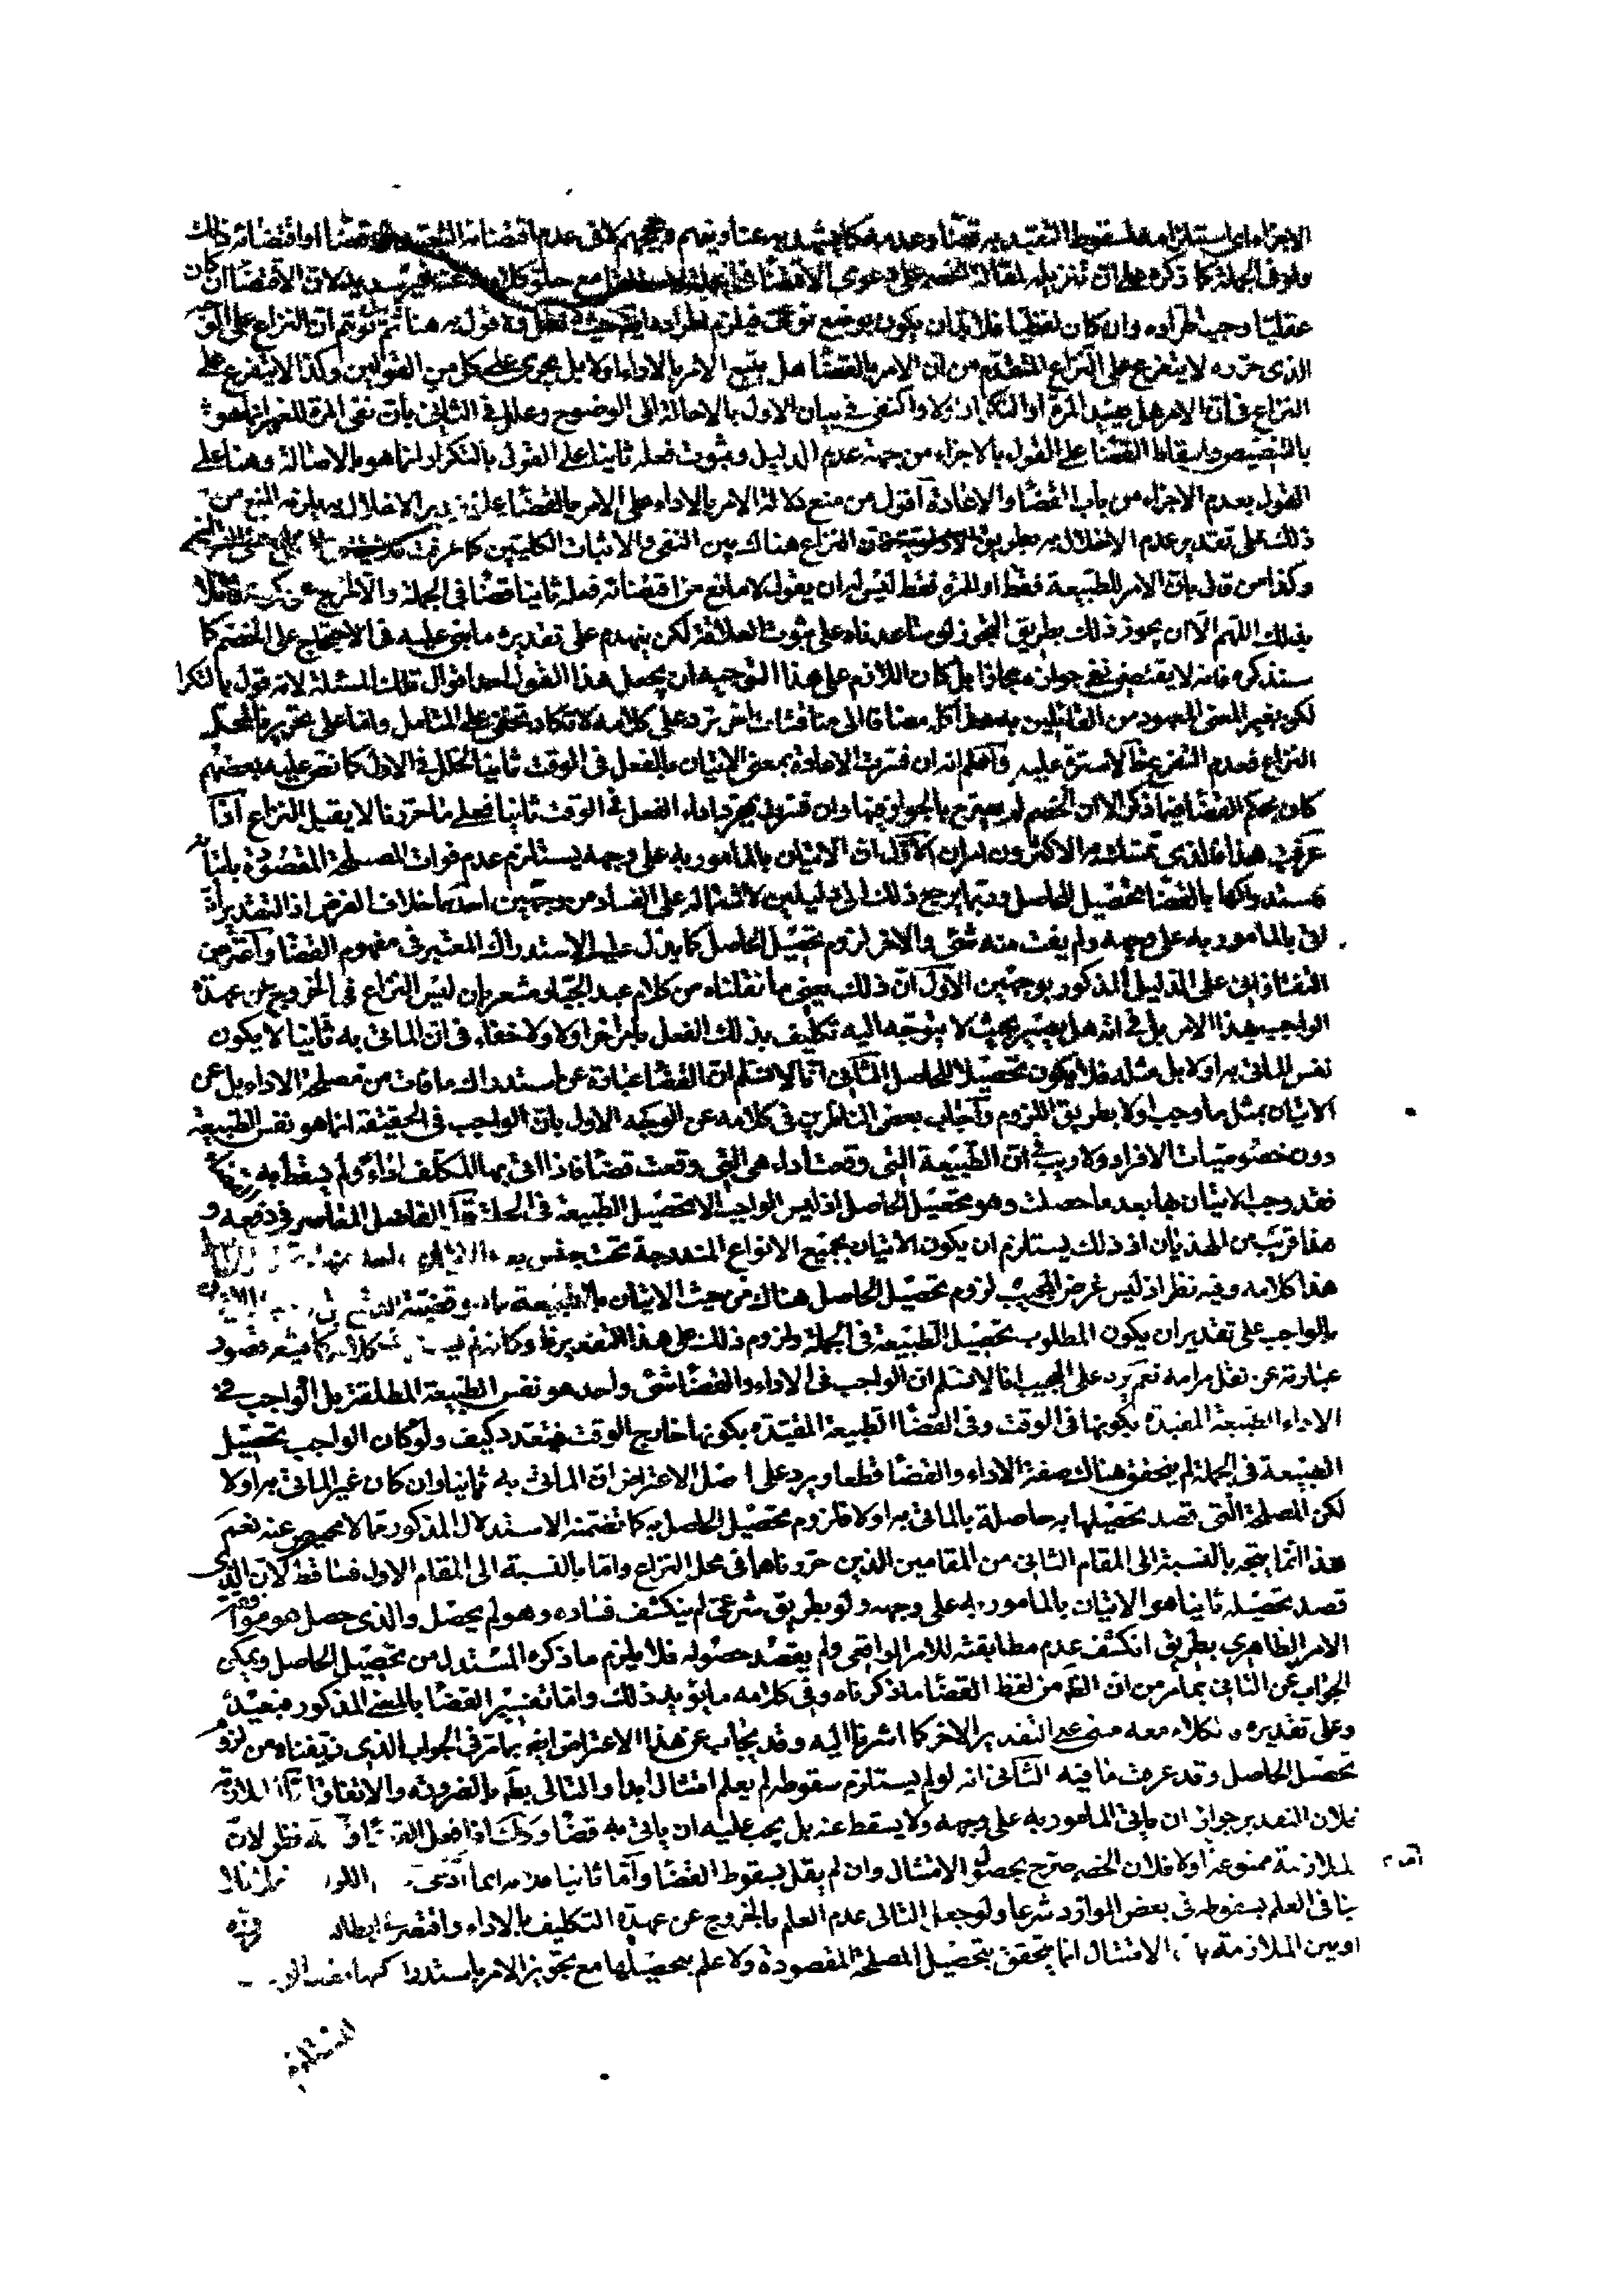 الاجزاء اى استلزامه لسقوط التعبد به قضاء وعدمه كما يشهد به عناوينهم وحججهم لا فى عدم اقتضائه التعبد به قضاء او اقتضائه ذلك
ولو فى الجملة كما ذكره على ان تنزيله لمقالة الخصم على دعوى الاقتضاء فى الجملة مع غير سديد لان الاقتضاء ان كان
عقليا وجب اطراده وان كان لفظيا فلا بد ان يكون بوضع نوعى فيلزم اطراده ايضا حيث هنا ثم توهم ان النزاع على الوجه
الذى حرره لا يتفرع على النزاع المتقدم من ان الامر بالقضاء هل يتبع الامر بالاداء او لا بل يجرى على كل من القولين وكذا لا يتفرع على
النزاع فى ان الامر هل يفيد المرة او التكرار او لا واكتفى فى بيان الاول بالاحالة الى الوضوح وعلل فى الثانى بان نفى المرة للغير انما هو
بالتنصيص واسقاط القضاء على القول بالاجزاء من جهة عدم الدليل وثبوت فعله ثانيا على القول بالتكرار انما هو بالاصالة وهنا على
القول بعدم الاجزاء من باب القضاء والاعادة اقول من منع دلالة الامر بالاداء على الامر بالقضاء على تقدير الاخلال به يلزمه المنع من
ذلك على تقدير عدم الاخلال به بطريق الاولوية فان النزاع هناك بين النفى والاثبات الكليين كما عرفت
وكذا من قال بان الامر للطبيعة فقط او المرة فقط ليس له ان يقول لا مانع من اقتضائه فعله ثانيا قضاء فى الجملة
بذلك اللهم الا ان يجوز ذلك بطريق التجوز لو ساعدناه على ثبوت العلاقة لكن ينهدم على تقديره ما بنى عليه فى الاحتجاج على الخصم كما
سنذكره فانه لا يقتضى نفى جوازه مجازا بل كان اللازم على هذا التوجيه ان يجعل هذا القول احد اقوال تلك المسئلة لانه قول بالتكرار
لكن بغير المعنى المعهود من القائلين به مضافا الى مناقشات اخر ترد على كلامه لا تكاد تخفى على المتامل واما على تحريرنا لمحل
النزاع فعدم التفرع مما لا سترة عليه واعلم انه ان فسرت الاعادة بمعنى الاتيان بالفعل فى الوقت ثانيا لخلل فى الاول كما نص عليه بعضهم
كان بحكم القضاء فيما ذكر الا ان الخصم لم يصرح بالجواز فيها وان فسرت بمجرد اداء الفعل فى الوقت ثانيا فعلى ما حررنا لا يقبل النزاع اذا
عرفت هذا فالذى تمسك به الاكثرون امران الاول ان الاتيان بالمامور به على وجهه يستلزم عدم فوات المصلحة المقصودة
فاستدراكها بالقضاء تحصيل للحاصل وربما يرجع ذلك الى دليلين لاشتماله على الفساد من وجهين احدهما خلاف الفرض اذ التقدير انه
اتى بالمامور به على وجهه ولم يفت منه شئ والاخر لزوم تحصيل الحاصل كما يدل عليه الاستدراك المعتبر فى مفهوم القضاء واعترض
التفتازانى على الدليل المذكور بوجهين الاول ان ذلك يعنى ما نقلناه من كلام عبد الجبار مشعر بان ليس النزاع فى الخروج عن عهدة
الواجب بهذا الامر بل فى انه هل يصير بحيث لا يتوجه اليه تكليف بذلك الفعل بامر اخر او لا ولا خفاء فى ان الماتى به ثانيا لا يكون
نفس الماتى به اولا بل مثله فلا يكون تحصيلا للحاصل الثانى انا لا نسلم ان القضاء عبارة عن استدراك ما فات من مصلحة الاداء بل عن
الاتيان بمثل ما وجب اولا بطريق اللزوم واجاب بعض الناظرين فى كلامه عن الوجه الاول بان الواجب فى الحقيقة انما هو نفس الطبيعة
دون خصوصيات الافراد ولا ريب فى ان الطبيعة التى وقعت اداء هى التى وقعت قضاء فاذا اتى بها المكلف اداء ولم يسقط به
فقد وجب الاتيان بها بعد ما حصلت وهو تحصيل الحاصل اذ ليس الواجب الا تحصيل الطبيعة فى الجملة قال الفاضل المعاصر فى دفعه و
هذا قريب من الهذيان اذ ذلك يستلزم ان يكون الاتيان بجميع الانواع المندرجة تحت جنس بعد الاتيان
هذا كلامه وفيه نظر اذ ليس غرض المجيب لزوم تحصيل الحاصل هناك من حيث الاتيان بالطبيعة
بالواجب على تقدير ان يكون المطلوب تحصيل الطبيعة فى الجملة ولزوم ذلك على هذا التقدير ظ وكانه لم كلامه كما يشعر قصور
عبارته عن نقل مرامه نعم يرد على المجيب انا لا نسلم ان الواجب فى الاداء والقضاء شئ واحد هو نفس الطبيعة المطلقة بل الواجب فى
الاداء الطبيعة المقيدة بكونها فى الوقت وفى القضاء الطبيعة المقيدة بكونها خارج الوقت فيتعدد كيف ولو كان الواجب تحصيل
الطبيعة فى الجملة لم يتحقق هناك صفة الاداء والقضاء قطعا ويرد على اصل الاعتراض ان الماتى به ثانيا وان كان غير الماتى به اولا
لكن المصلحة التى قصد تحصيلها به حاصلة بالماتى به اولا فلزوم تحصيل الحاصل به كما تضمنه الاستدلال المذكور مما لا محيص عنه نعم
هذا انما يتجه بالنسبة الى المقام الثانى من المقامين الذين حررناهما فى محل النزاع واما بالنسبة الى المقام الاول فساقط لان الذى
قصد تحصيله ثانيا هو الاتيان بالمامور به على وجهه ولو بطريق شرعى لم ينكشف فساده وهو لم يحصل والذى حصل هو موافقة
الامر الظاهرى بطريق انكشف عدم مطابقته للامر الواقعى ولم يقصد حصوله فلا يلزم ما ذكره المستدل من تحصيل الحاصل ويمكن
الجواب عن الثانى بما مر من ان الظ من لفظ القضاء ما ذكرناه وفى كلامه ما يؤيد ذلك واما تفسير القضاء بالمعنى المذكور فبعيد
وعلى تقديره فكلامه معه مبنى على التقدير الاخر كما اشرنا اليه وقد يجاب عن هذا الاعتراض ايضا بما مر فى الجواب الذى زيفناه من لزوم
تحصيل الحاصل وقد عرفت ما فيه الثانى انه لو لم يستلزم سقوطه لم يعلم امتثال ابدا والتالى بط بالضرورة والاتفاق اما الملازمة
فلان التقدير جواز ان ياتى المامور به على وجهه ولا يسقط عنه بل يجب عليه ان ياتى به قضاء وكذا اذا فعل القضاء وفيه نظر لان
الملازمة ممنوعة اما اولا فلان الخصم صرح بحصول الامتثال وان لم يقل بسقوط القضاء واما ثانيا فلانه انما ادعى
ينافى العلم بسقوطه فى بعض الموارد شرعا ولو جعل التالى عدم العلم بالخروج عن عهدة التكليف بالاداء واقتصر فى ابطاله
او بين الملازمة بان الامتثال انما يتحقق بتحصيل المصلحة المقصودة ولا علم بتحصيلها مع تجويز الامر باستدراكها